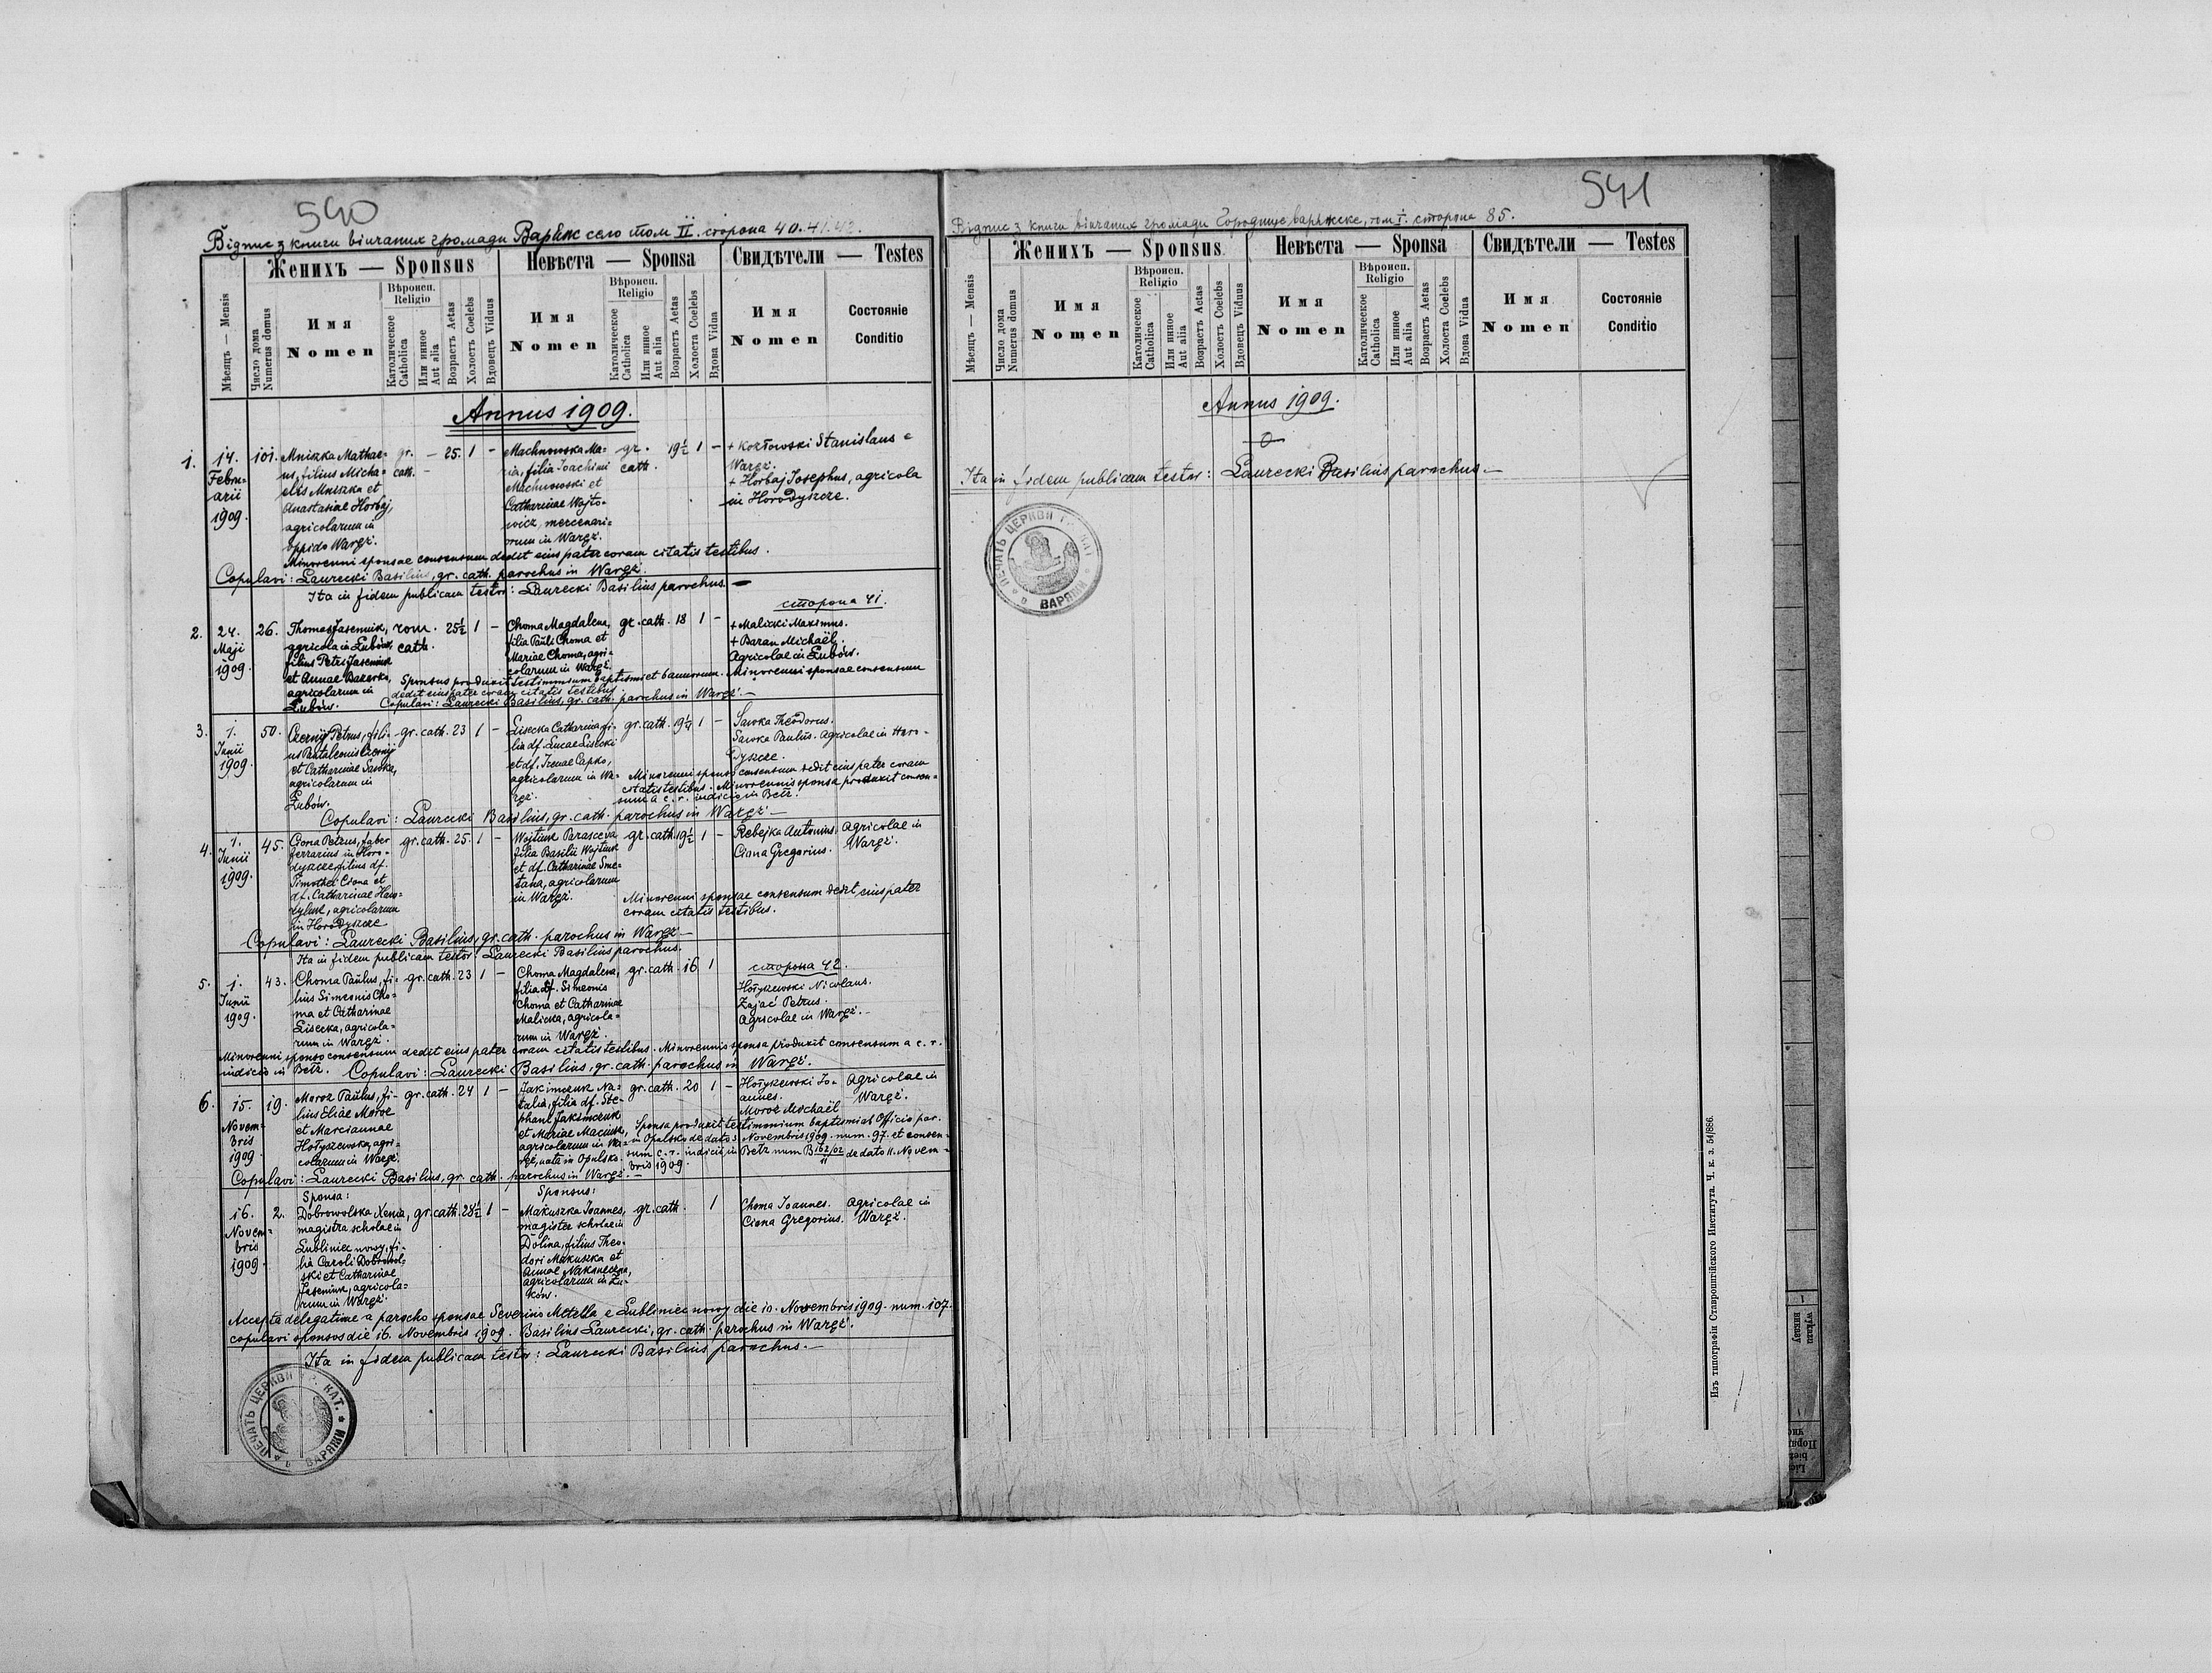 540
Відпис з книги вінчаних громади Варяж село том II. сторона 40. 41. 42.
Женихъ — Sponsus
Невѣста — Sponsa
Свидѣтели — Testes
Мѣсяцъ — Mensis
Число дома Numerus domus
Имя Nomen
Вѣроисп. Religio
Католическое Catholica
Или инное Aut alia
Возрастъ Aetas
Холостъ Coelebs
Вдовецъ Viduus
Имя Nomen
Вѣроисп. Religio
Католическое Catholica
Или инное Aut alia
Возрастъ Aetas
Холоста Coelebs
Вдова Vidua
Имя Nomen
Состояніе Conditio
Annus 1909.
1.
14. Febru=
arii
1909.
101.
Mniszka Mathae=
us, filius Micha=
elis Mniszka et
Anastasiae Horbaj,
agricolarum in
oppido Waręż.
gr. cath. — 25. 1 —
Machnowska Ma=
ria, filia Joachimi
Machnowski et
Catharinae Wajto=
wicz, mercenari=
orum in Waręż.
gr. cath. 19½ 1 —
+ Kozłowski Stanislaus e
Waręż.
+ Horbaj Josephus, agricola
in Horodyszcze.
Minorenni sponsae consensum dedit eius pater coram citatis testibus.
Copulavi: Laurecki Basilius, gr. cath. parochus in Waręż.
Ita in fidem publicam testor: Laurecki Basilius parochus. —
сторона 41.
2.
24.
Maji
1909.
26.
Thomas Jaseniuk,
agricola in Łubów,
filius Petri Jaseniuk
et Annae Bazarka,
agricolarum in
Łubów.
rom. cath. 25½ 1 —
Choma Magdalena,
filia Pauli Choma et
Mariae Choma, agri=
colarum in Waręż.
gr. cath. 18 1 —
+ Malicki Maximus.
+ Baran Michaël.
Agricolae in Łubów.
Sponsus produxit testimonium baptismi et bannorum. Minorenni sponsae consensum
dedit eius pater coram citatis testibus
Copulavi: Laurecki Basilius, gr. cath. parochus in Waręż. —
3.
1.
Junii
1909.
50.
Czernij Petrus, fili=
us Pantaleonis Czernij
et Catharinae Sawka,
agricolarum in
Łubów.
gr. cath. 23 1 —
Lisecka Catharina fi=
lia df. Lucae Lisecki
et df. Irenae Capko,
agricolarum in Wa=
ręż.
gr. cath. 19¼ 1 —
Sawka Theodorus.
Sawka Paulus. Agricolae in Horo=
dyszcze.
Minorenni sponso consensum dedit eius pater coram
citatis testibus. Minorennis sponsa produxit consen=
sum a c. r. iudicio in Bełz.
Copulavi: Laurecki Basilius, gr. cath. parochus in Waręż —
4.
1.
Junii
1909.
45.
Ciona Petrus, faber
ferrarius in Horo=
dyszcze, filius df.
Timothei Ciona et
df. Catharinae Haw=
ryluk, agricolarum
in Horodyszcze
gr. cath. 25. 1 —
Wojtiuk Parasceva
filia Basilii Wojtiuk
et df. Catharinae Sme=
tana, agricolarum
in Waręż.
gr. cath. 19½ 1 —
Rebejka Antonius.
Ciona Gregorius.
Agricolae in
Waręż.
Minorenni sponsae consensum dedit eius pater
coram citatis testibus.
Copulavi: Laurecki Basilius, gr. cath. parochus in Waręż —
Ita in fidem publicam testor: Laurecki Basilius parochus.
5.
1.
Junii
1909.
43.
Choma Paulus, fi=
lius Simeonis Cho=
ma et Catharinae
Lisecka, agricola=
rum in Waręż.
gr. cath. 23 1 —
Choma Magdalena,
filia df. Simeonis
Choma et Catharinae
Malicka, agricola=
rum in Waręż.
gr. cath. 16 1
сторона 42.
Hołyszewski Nicolaus.
Zając Petrus.
Agricolae in Waręż. —
Minorenni sponso consensum dedit eius pater coram citatis testibus. Minorennis sponsa produxit consensum a c. r.
iudicio in Bełz. Copulavi: Laurecki Basilius, gr. cath. parochus in Waręż.
6.
15.
Novem=
bris
1909.
19.
Moroz Paulus, fi=
lius Eliae Moroz
et Marciannae
Hołyszewska, agri=
colarum in Waręż.
gr. cath. 24 1 —
Jakimczuk Na=
talia, filia df. Ste=
phani Jakimczuk
et Mariae Maciuk,
agricolarum in Wa=
ręż, nata in Opulsko.
gr. cath. 20 1 —
Hołyszewski Jo=
annes.
Moroz Michaël
Agricolae in
Waręż.
Sponsa produxit testimonium baptismi ab Officio par.
in Opulsko de dato 3. Novembris 1909. num. 97. et consen=
sum c. r. iudicii in Bełz num B 162/02 11 de dato 11. Novem=
bris 1909.
Copulavi: Laurecki Basilius, gr. cath. parochus in Waręż. —
16.
Novem=
bris
1909.
2.
Sponsa:
Dobrowolska Xenia,
magistra scholae in
Lubliniec nowy, fi=
lia Caroli Dobrowol=
ski et Catharinae
Jaseniuk, agricola=
rum in Waręż.
gr. cath. 28½ 1 —
Sponsus:
Makuszka Joannes,
magister scholae in
Dolina, filius Theo=
dori Makuszka et
Annae Nakaneczna,
agricolarum in Żu=
ków.
gr. cath. 1
Choma Joannes.
Ciona Gregorius.
Agricolae in
Waręż.
Accepta delegatione a parocho sponsae Severino Metella e Lubliniec nowy die 10. Novembris 1909. num. 107.
copulavi sponsos die 16. Novembris 1909. Basilius Laurecki, gr. cath. parochus in Waręż.
Ita in fidem publicam testor: Laurecki Basilius parochus. —
ПЕЧАТЬ ЦЕРКВИ ГР. КАТ. * въ ВАРЯЖИ *
541
Відпис з книги вінчаних громади Городище варяжске, том I. сторона 85.
Женихъ — Sponsus
Невѣста — Sponsa
Свидѣтели — Testes
Мѣсяцъ — Mensis
Число дома Numerus domus
Имя Nomen
Вѣроисп. Religio
Католическое Catholica
Или инное Aut alia
Возрастъ Aetas
Холостъ Coelebs
Вдовецъ Viduus
Имя Nomen
Вѣроисп. Religio
Католическое Catholica
Или инное Aut alia
Возрастъ Aetas
Холоста Coelebs
Вдова Vidua
Имя Nomen
Состояніе Conditio
Annus 1909.
0
Ita in fidem publicam testor: Laurecki Basilius parochus —
ПЕЧАТЬ ЦЕРКВИ ГР. КАТ * въ ВАРЯЖИ *
Изъ типографіи Ставропигійского Института. Ч. к. з. 54/886.
1
wykazu
виказу